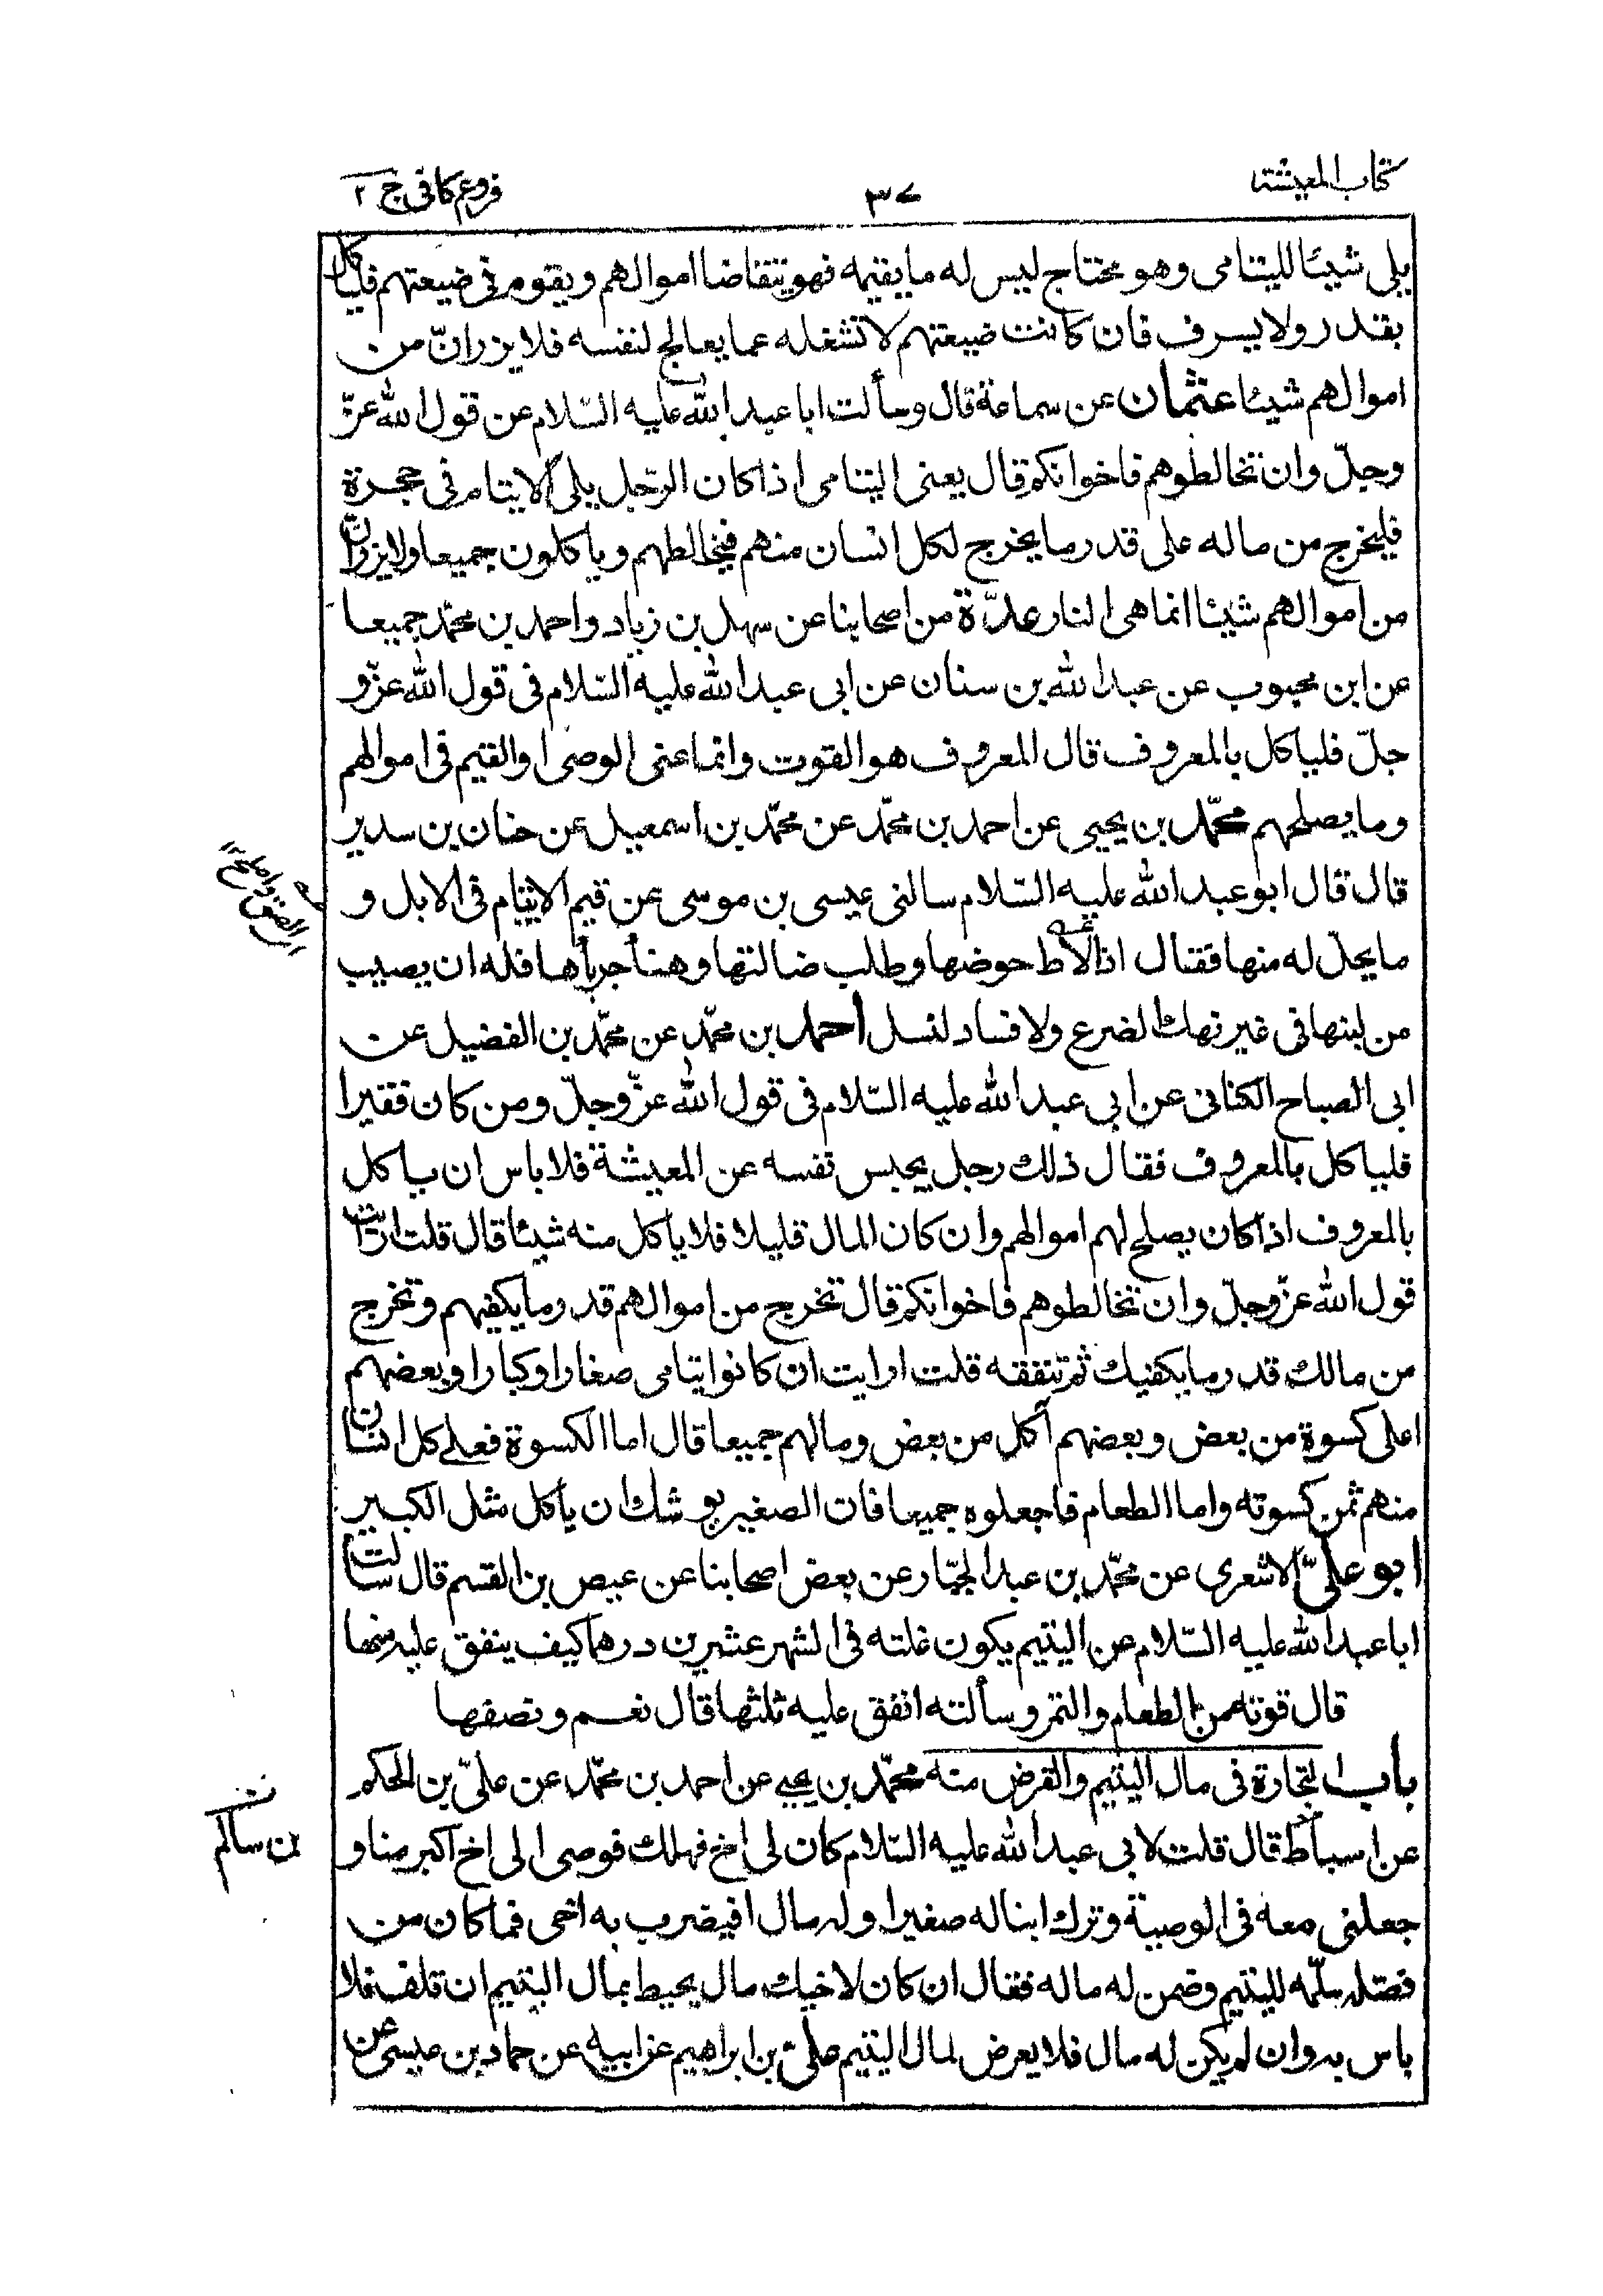 كتاب المعيشة
٣٧
فروع كافى ج ٢
يلى شيئا لليتامى وهو محتاج ليس له ما يقيمه فهو يتقاضا اموالهم ويقوم فى ضيعتهم فلياكل
بقدر ولا يسرف فان كانت ضيعتهم لا تشغله عما يعالج لنفسه فلا يزرانّ من
اموالهم شيئا عثمان عن سماعة قال وسألت ابا عبد الله عليه السّلام عن قول الله عزّ
وجلّ وان تخالطوهم فاخوانكم قال يعنى اليتامى اذا كان الرّجل يلى الايتام فى حجرة
فليخرج من ماله على قدر ما يخرج لكل انسان منهم فيخالطهم وياكلون جميعا ولا يزرأنّ
من اموالهم شيئا انما هى النار عدّة من اصحابنا عن سهل بن زياد واحمد بن محمّد جميعا
عن ابن محبوب عن عبد الله بن سنان عن ابى عبد الله عليه السّلام فى قول الله عزّ و
جلّ فلياكل بالمعروف قال المعروف هو القوت وانما عنى الوصى او القيم فى اموالهم
وما يصلحهم محمّد بن يحيى عن احمد بن محمّد عن محمّد بن اسمعيل عن حنان بن سدير
قال قال ابو عبد الله عليه السّلام سالنى عيسى بن موسى عن قيم الايتام فى الابل و
ما يحلّ له منها فقال اذا لاط حوضها وطلب ضالتها وهنأ جرباها فله ان يصيب
من لبنها فى غير نهك الضرع ولا فساد لنسل احمد بن محمّد عن محمّد بن الفضيل عن
ابى الصباح الكنانى عن ابى عبد الله عليه السّلام فى قول الله عزّ وجلّ ومن كان فقيرا
فلياكل بالمعروف فقال ذلك رجل يحبس نفسه عن المعيشة فلا باس ان ياكل
بالمعروف اذا كان يصلح لهم اموالهم وان كان المال قليلا فلا ياكل منه شيئا قال قلت ارايت
قول الله عزّ وجلّ وان تخالطوهم فاخوانكم قال تخرج من اموالهم قدر ما يكفيهم وتخرج
من مالك قدر ما يكفيك ثم تنفقه قلت ارايت ان كانوا يتامى صغارا وكبارا وبعضهم
اعلى كسوة من بعض وبعضهم آكل من بعض ومالهم جميعا قال اما الكسوة فعلى كل انسان
منهم ثمن كسوته واما الطعام فاجعلوه جميعا فان الصغير يوشك ان يأكل مثل الكبير
ابو علىّ الاشعرى عن محمّد بن عبد الجبّار عن بعض اصحابنا عن عيص بن القسم قال سالت
ابا عبد الله عليه السّلام عن اليتيم يكون غلته فى الشهر عشرين درهما كيف ينفق عليه منها
قال قوته من الطعام والتمر وسألته انفق عليه ثلثها قال نعم ونصفها
باب التجارة فى مال اليتيم والقرض منه محمّد بن يحيى عن احمد بن محمّد عن علىّ بن الحكم
عن اسباط قال قلت لابى عبد الله عليه السّلام كان لى اخ فهلك فوصى الى اخ اكبر منا و
بن سالم
جعلنى معه فى الوصية وترك ابنا له صغيرا وله مال افيضرب به اخى فما كان من
فضل سلّمه لليتيم وضمن له ماله فقال ان كان لاخيك مال يحيط بمال اليتيم ان تلف فلا
باس به وان لم يكن له مال فلا يعرض لمال اليتيم علىّ بن ابراهيم عن ابيه عن حماد بن عيسى عن